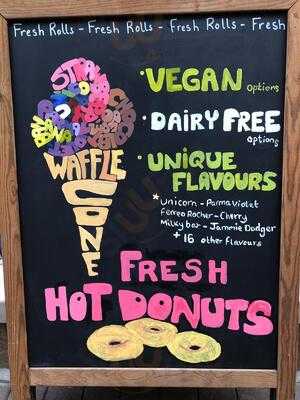 Fresh Rolls - Fresh Rolls - Fresh Rolls - Fresh
· VEGAN options
· DAIRY FREE options
· UNIQUE
FLAVOURS
* Unicorn - Parma Violet
Ferrero Rocher - Cherry
Milky bar - Jammie Dodger
+ 16 other flavours
WAFFLE
CONE
FRESH
HOT DONUTS